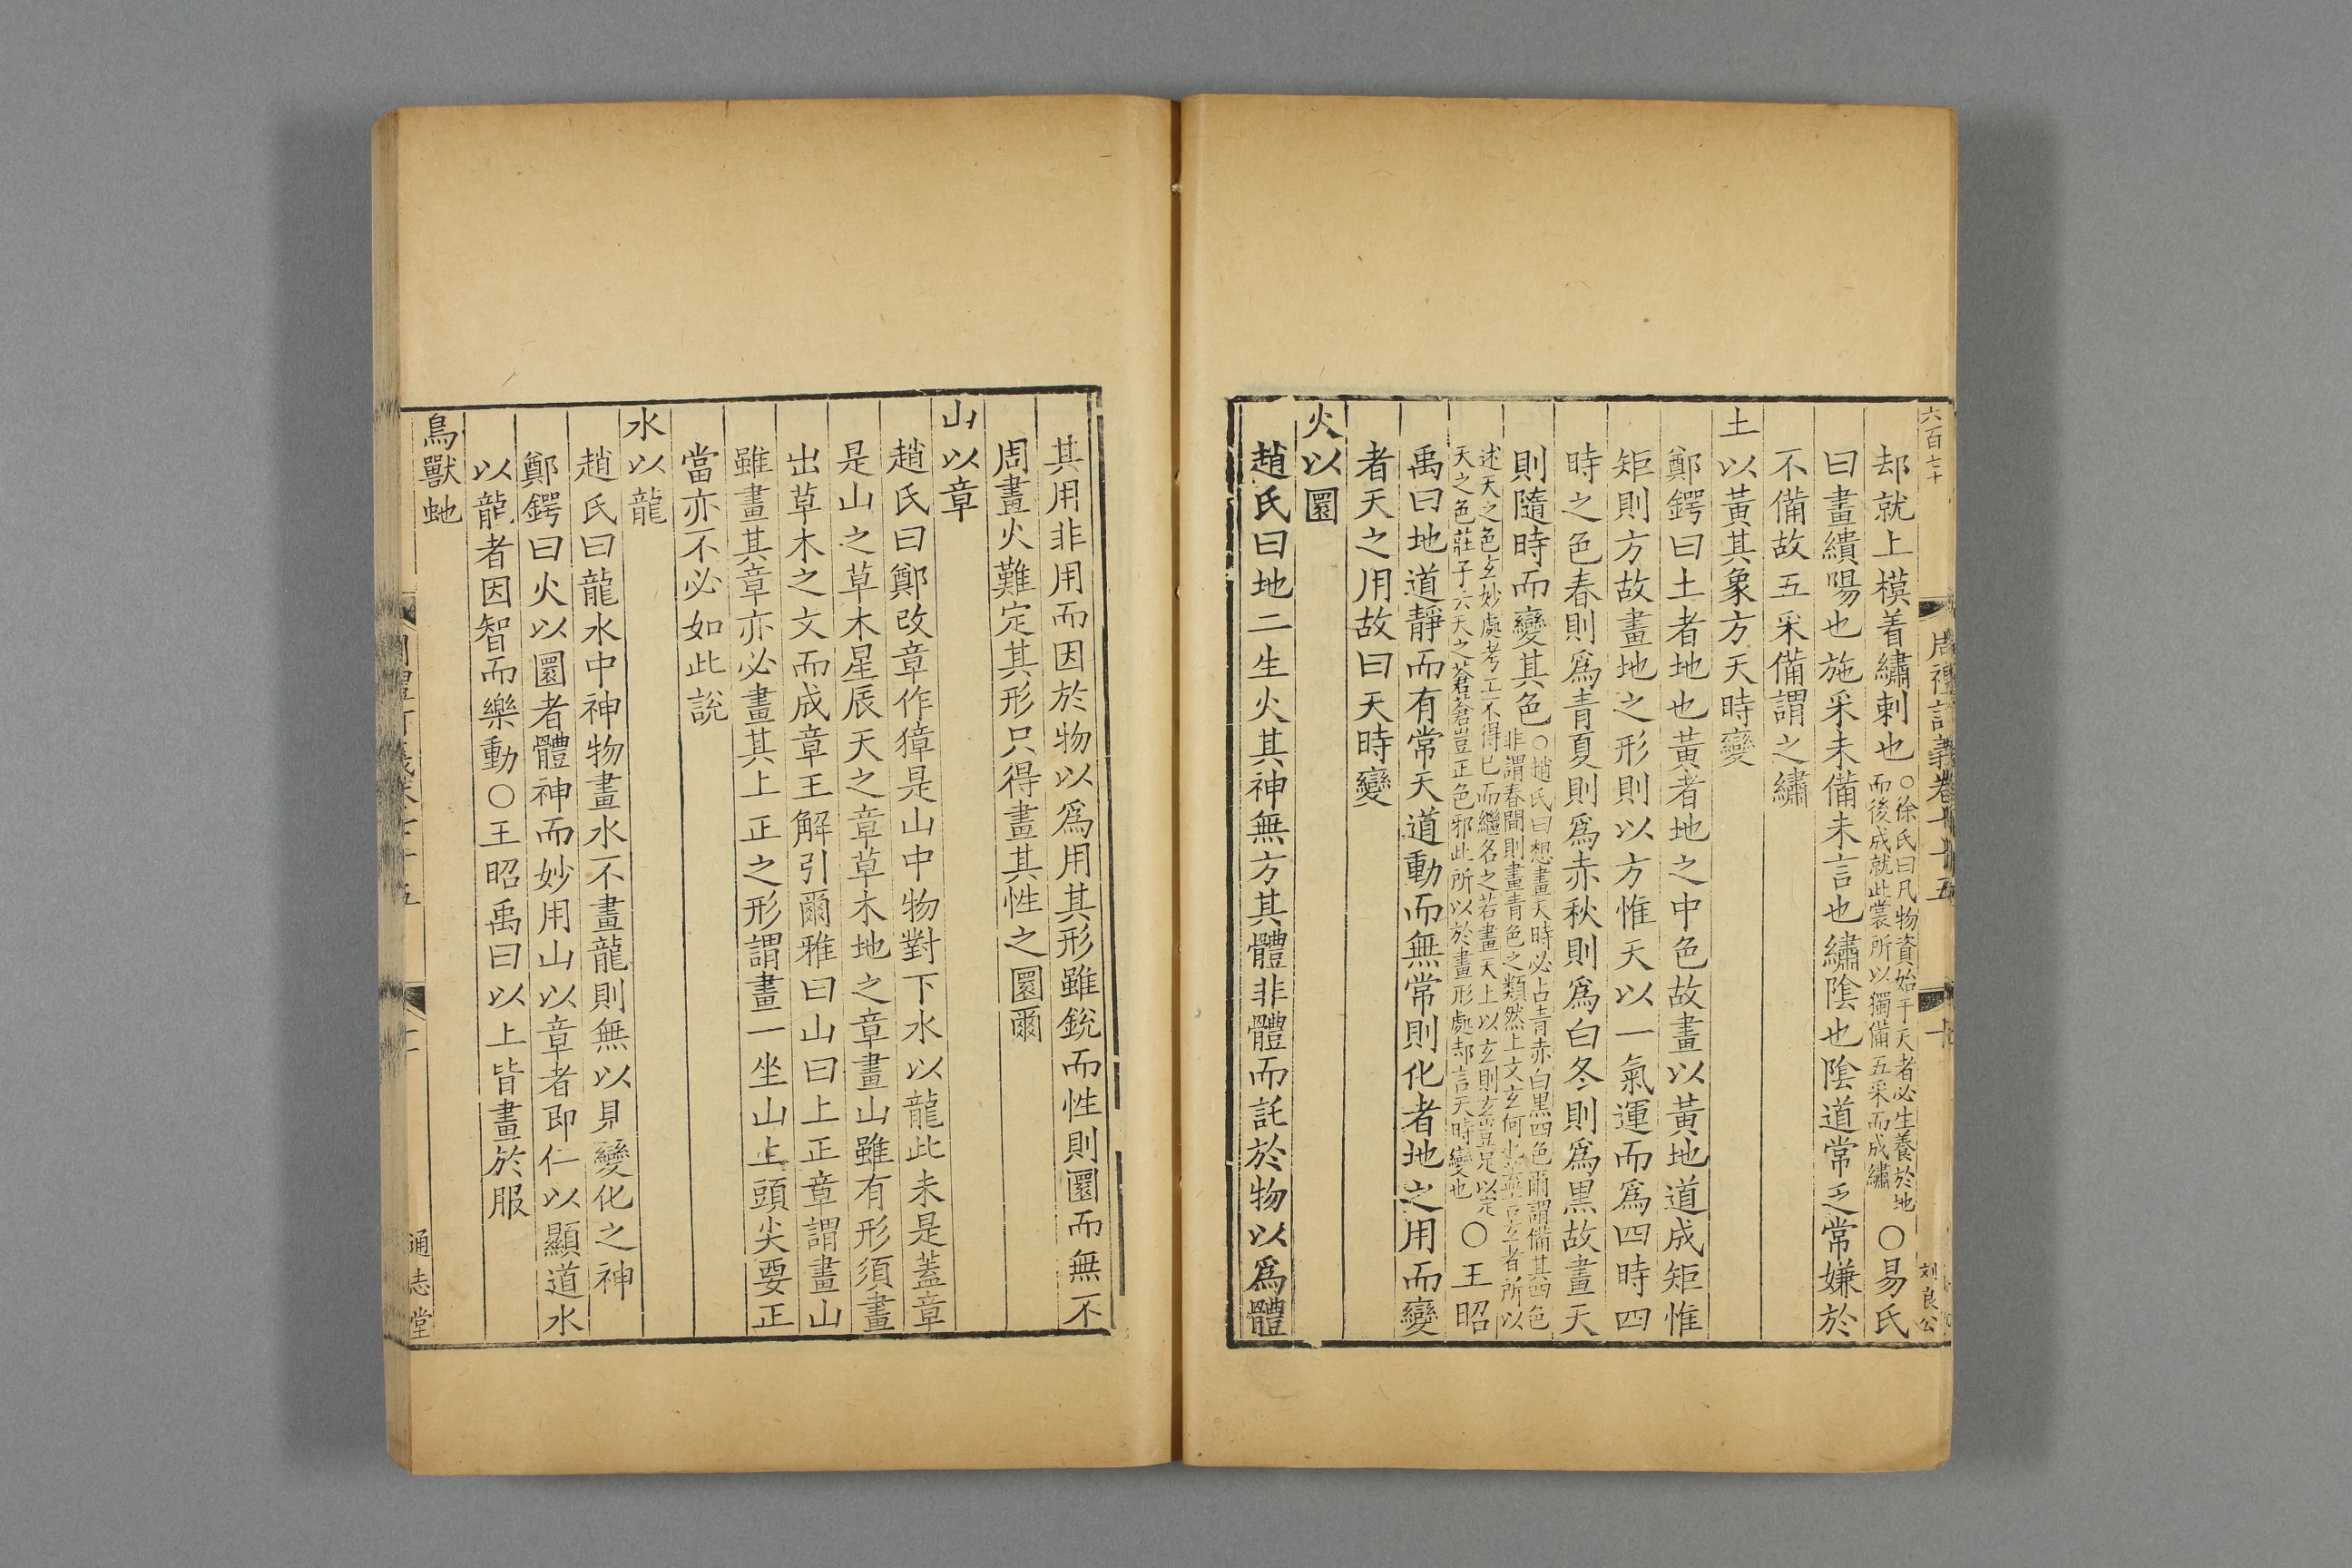 六百七十
周禮訂義卷七十五
十
刘良公
却就上模着繡刺也○徐氏曰凡物資始于天者必生養於地而後成就此裳所以獨備五采而成繡○易氏
曰畫繢陽也施采未備未言也繡陰也陰道常乏常嫌於
不備故五采備謂之繡
土以黃其象方天時變
鄭鍔曰土者地也黃者地之中色故畫以黃地道成矩惟
矩則方故畫地之形則以方惟天以一氣運而爲四時四
時之色春則爲青夏則爲赤秋則爲白冬則爲黑故畫天
則隨時而變其色○趙氏曰想畫天時必占青赤白黑四色爾謂備其四色非謂春間則畫青色之類然上文玄何也言玄者所以
述天之色玄妙處考工不得已而繼名之若畫天上以玄則玄豈足以定天之色莊子六天之蒼蒼豈正色邪此所以於畫形處却言天時變也○王昭
禹曰地道靜而有常天道動而無常則化者地之用而變
者天之用故曰天時變
火以圜
趙氏曰地二生火其神無方其體非體而託於物以爲體
其用非用而因於物以爲用其形雖銳而性則圜而無不
周畫火難定其形只得畫其性之圜爾
山以章
趙氏曰鄭改章作獐是山中物對下水以龍此未是蓋章
是山之草木星辰天之章草木地之章畫山雖有形須畫
出草木之文而成章王解引爾雅曰山曰上正章謂畫山
雖畫其章亦必畫其上正之形謂畫一坐山上頭尖要正
當亦不必如此說
水以龍
趙氏曰龍水中神物畫水不畫龍則無以見變化之神
鄭鍔曰火以圜者體神而妙用山以章者即仁以顯道水
以龍者因智而樂動○王昭禹曰以上皆畫於服
鳥獸虵
通志堂